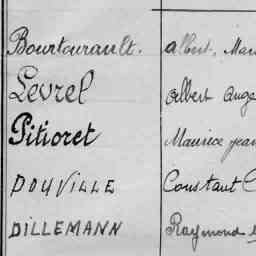 Bourtourault. Albert, Mau
Levrel Albert Auge
Pitioret Maurice Jean
DOUVILLE Constant
DILLEMANN Raymond